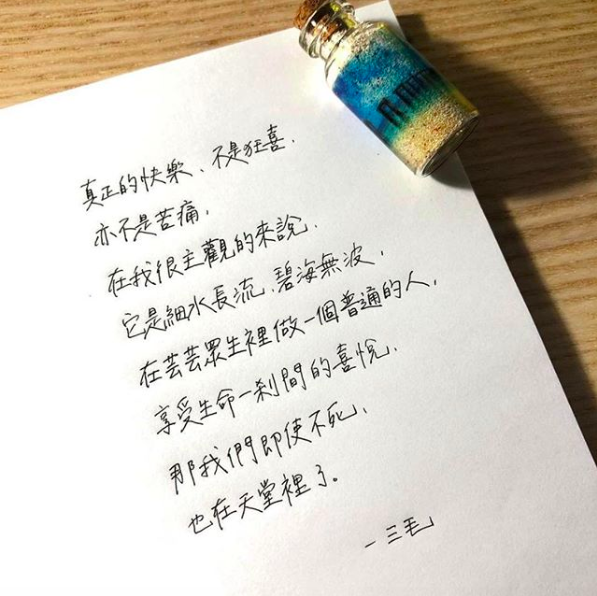 真正的快樂、不是狂喜.
亦不是苦痛,
在我很主觀的來說.
它是細水長流.碧海無波,
在芸芸眾生裡做一個普通的人,
享受生命一剎間的喜悅.
那我們即使不死,
也在天堂裡了。
-三毛